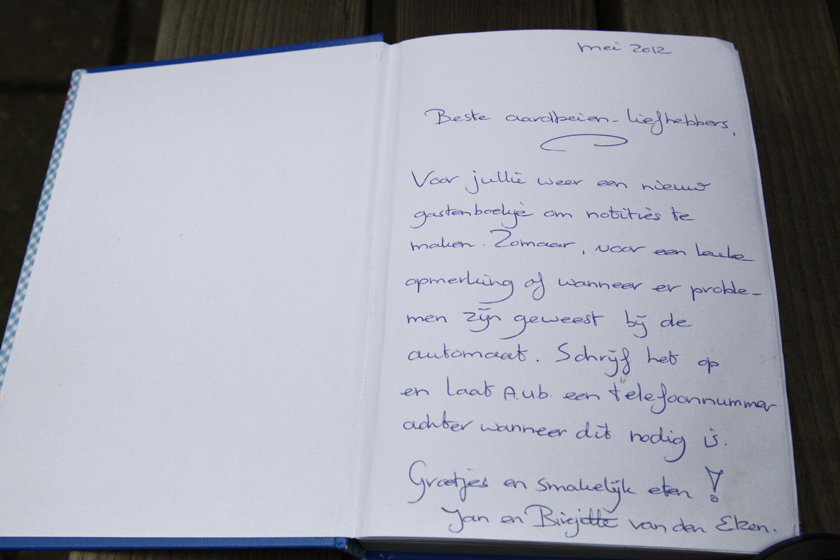 mei 2012
Beste aardbeien-liefhebbers,
Voor jullie weer een nieuw
gastenboekje om notities te
maken. Zomaar, voor een leuke
opmerking of wanneer er proble-
men zijn geweest bij de
automaat. Schrijf het op
en laat A.ub. een telefoonnummer
achter wanneer dit nodig is.
Groetjes en smakelijk eten!
Jan en Birgitte van den Elzen.